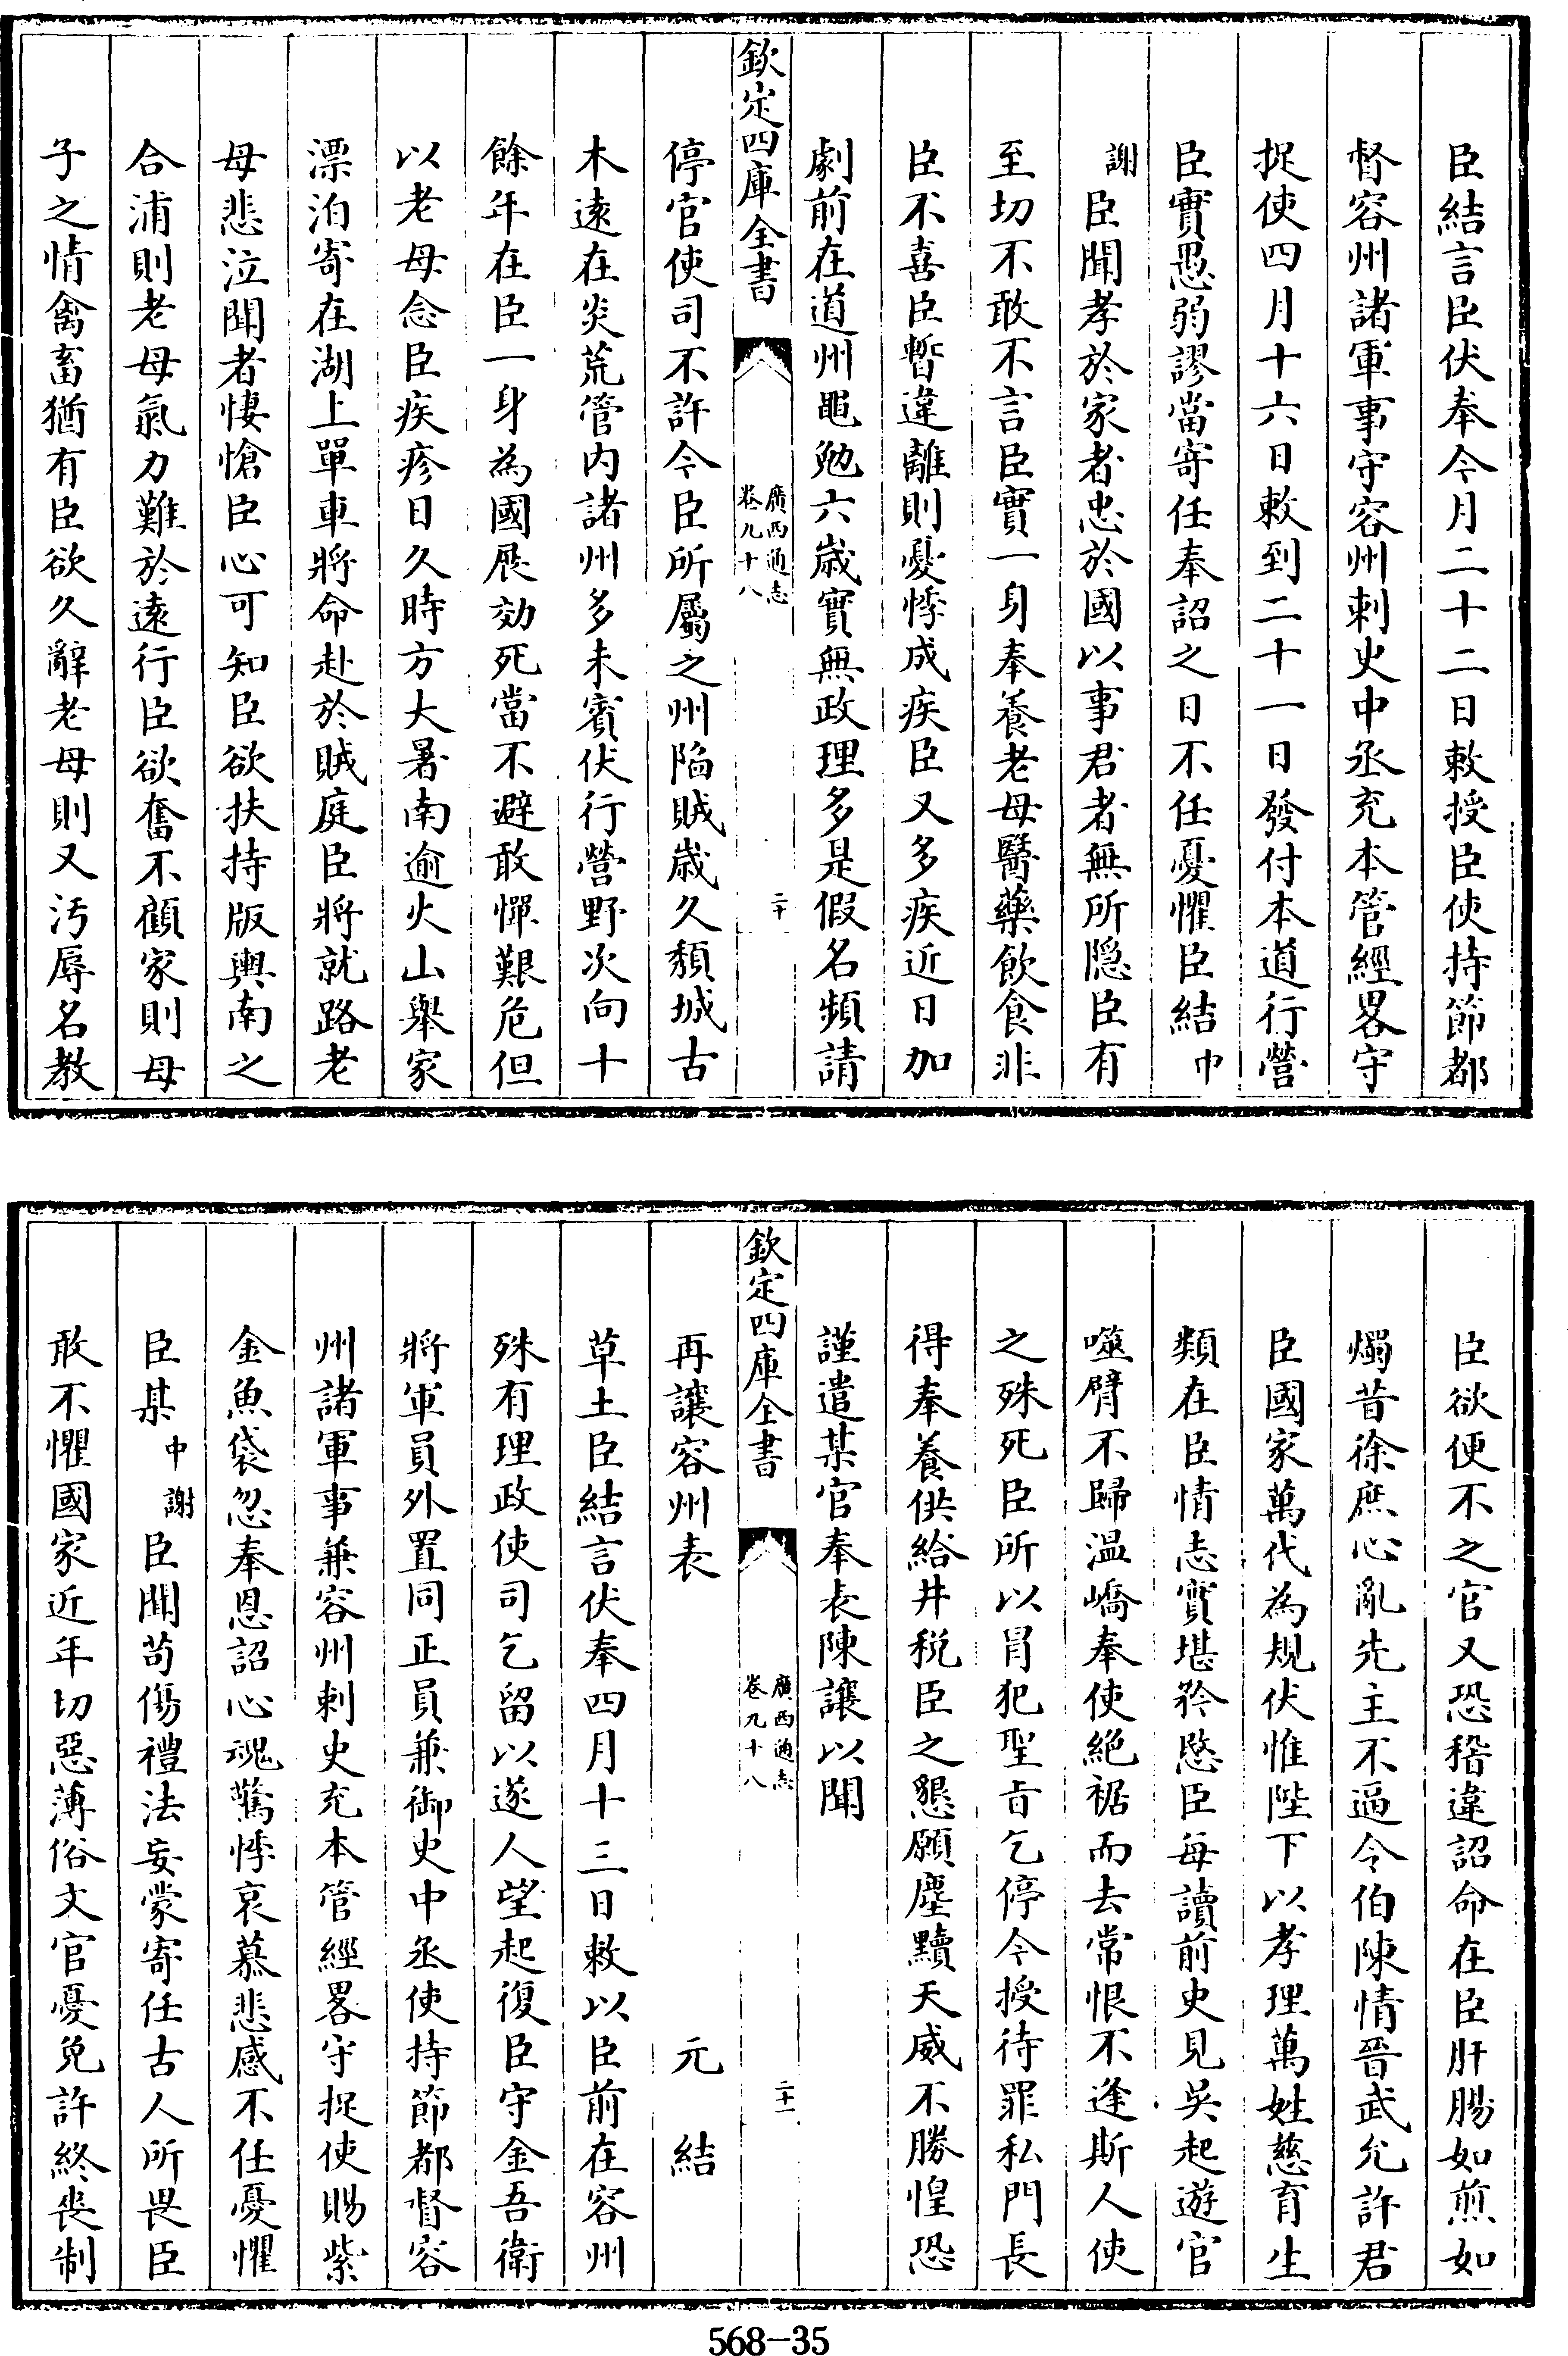 臣結言臣伏奉今月二十二日敕授臣使持節都
督容州諸軍事守容州刺史中丞充本管經畧守
捉使四月十六日敕到二十一日發付本道行營
臣實愚弱謬當寄任奉詔之日不任憂懼臣結中
謝臣聞孝於家者忠於國以事君者無所隱臣有
至切不敢不言臣實一身奉養老母醫藥飲食非
臣不喜臣暫違離則憂悸成疾臣又多疾近日加
劇前在道州黽勉六歲實無政理多是假名頻請
欽定四庫全書
廣西通志
卷九十八
二十
停官使司不許今臣所屬之州陷賊歲久頹城古
木遠在炎荒管内諸州多未賓伏行營野次向十
餘年在臣一身為國展効死當不避敢憚艱危但
以老母念臣疾疹日久時方大暑南逾火山舉家
漂泊寄在湖上單車將命赴於賊庭臣將就路老
母悲泣聞者悽愴臣心可知臣欲扶持版輿南之
合浦則老母氣力難於遠行臣欲奮不顧家則母
子之情禽畜猶有臣欲久辭老母則又汚辱名教
臣欲便不之官又恐稽違詔命在臣肝腸如煎如
燭昔徐庶心亂先主不逼令伯陳情晉武允許君
臣國家萬代為規伏惟陛下以孝理萬姓慈育生
類在臣情志實堪矜愍臣每讀前史見吳起遊官
噬臂不歸温嶠奉使絕裾而去常恨不逢斯人使
之殊死臣所以冒犯聖旨乞停今授待罪私門長
得奉養供給井税臣之懇願塵黷天威不勝惶恐
謹遣某官奉表陳讓以聞
欽定四庫全書
廣西通志
卷九十八
二十一
再讓容州表 元結
草土臣結言伏奉四月十三日敕以臣前在容州
殊有理政使司乞留以遂人望起復臣守金吾衛
將軍員外置同正員兼御史中丞使持節都督容
州諸軍事兼容州刺史充本管經畧守捉使賜紫
金魚袋忽奉恩詔心魂驚悸哀慕悲感不任憂懼
臣某中謝臣聞苟傷禮法妄蒙寄任古人所畏臣
敢不懼國家近年切惡薄俗文官憂免許終喪制
568-35